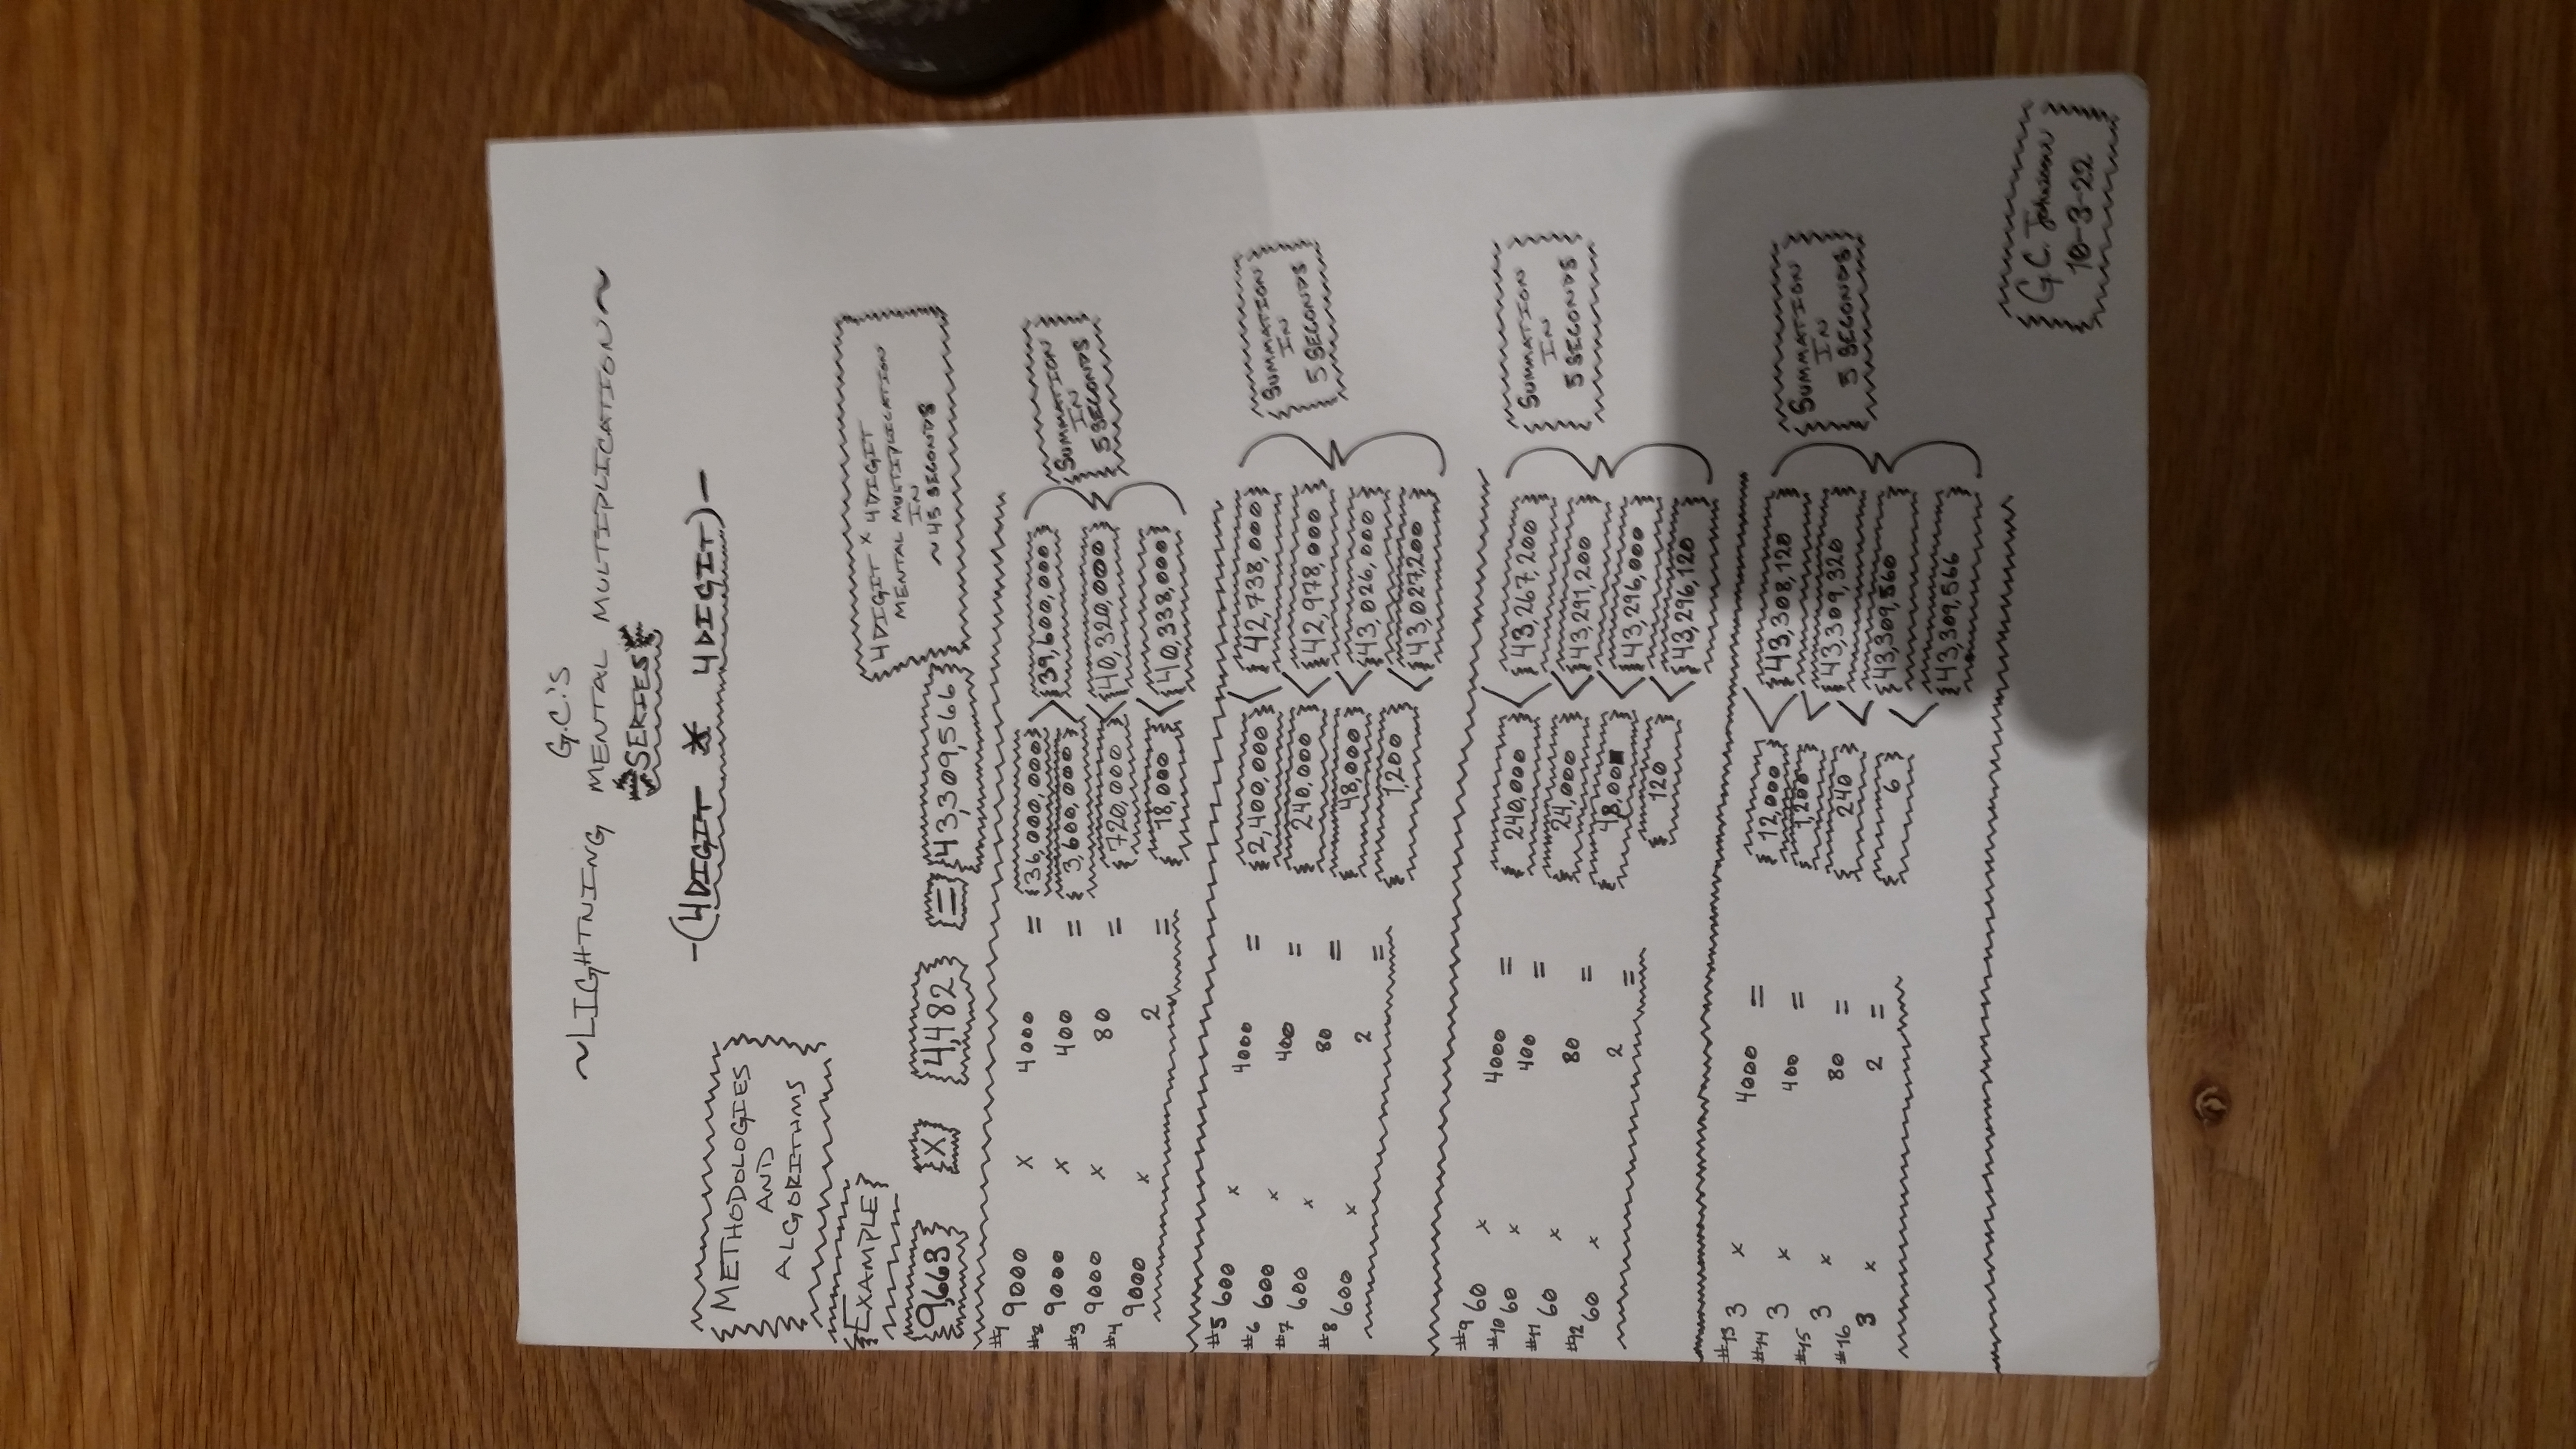 G.C.'S
~LIGHTNING MENTAL MULTIPLICATION~
SERIES
-(4DIGIT X 4DIGIT)-
METHODOLOGIES
AND
ALGORITHMS
EXAMPLE
4DIGIT x 4DIGIT
MENTAL MULTIPLICATION
IN
~45 SECONDS
9,663 X 4,482 = 43,309,566
#1 9000 X 4000 = 36,000,000 39,600,000
#2 9000 X 400 = 3,600,000
#3 9000 X 80 = 720,000 40,320,000
#4 9000 X 2 = 18,000 40,338,000
SUMMATION
IN
5 SECONDS
#5 600 x 4000 = 2,400,000 42,738,000
#6 600 x 400 = 240,000 42,978,000
#7 600 x 80 = 48,000 43,026,000
#8 600 x 2 = 1,200 43,027,200
SUMMATION
IN
5 SECONDS
#9 60 x 4000 = 240,000 43,267,200
#10 60 x 400 = 24,000 43,291,200
#11 60 x 80 = 48,00 43,296,000
#12 60 x 2 = 120 43,296,120
SUMMATION
IN
5 SECONDS
#13 3 x 4000 = 12,000 43,308,120
#14 3 x 400 = 1,200 43,309,320
#15 3 x 80 = 240 43,309,560
#16 3 x 2 = 6 43,309,566
SUMMATION
IN
5 SECONDS
G.C. Johnson
10-3-22